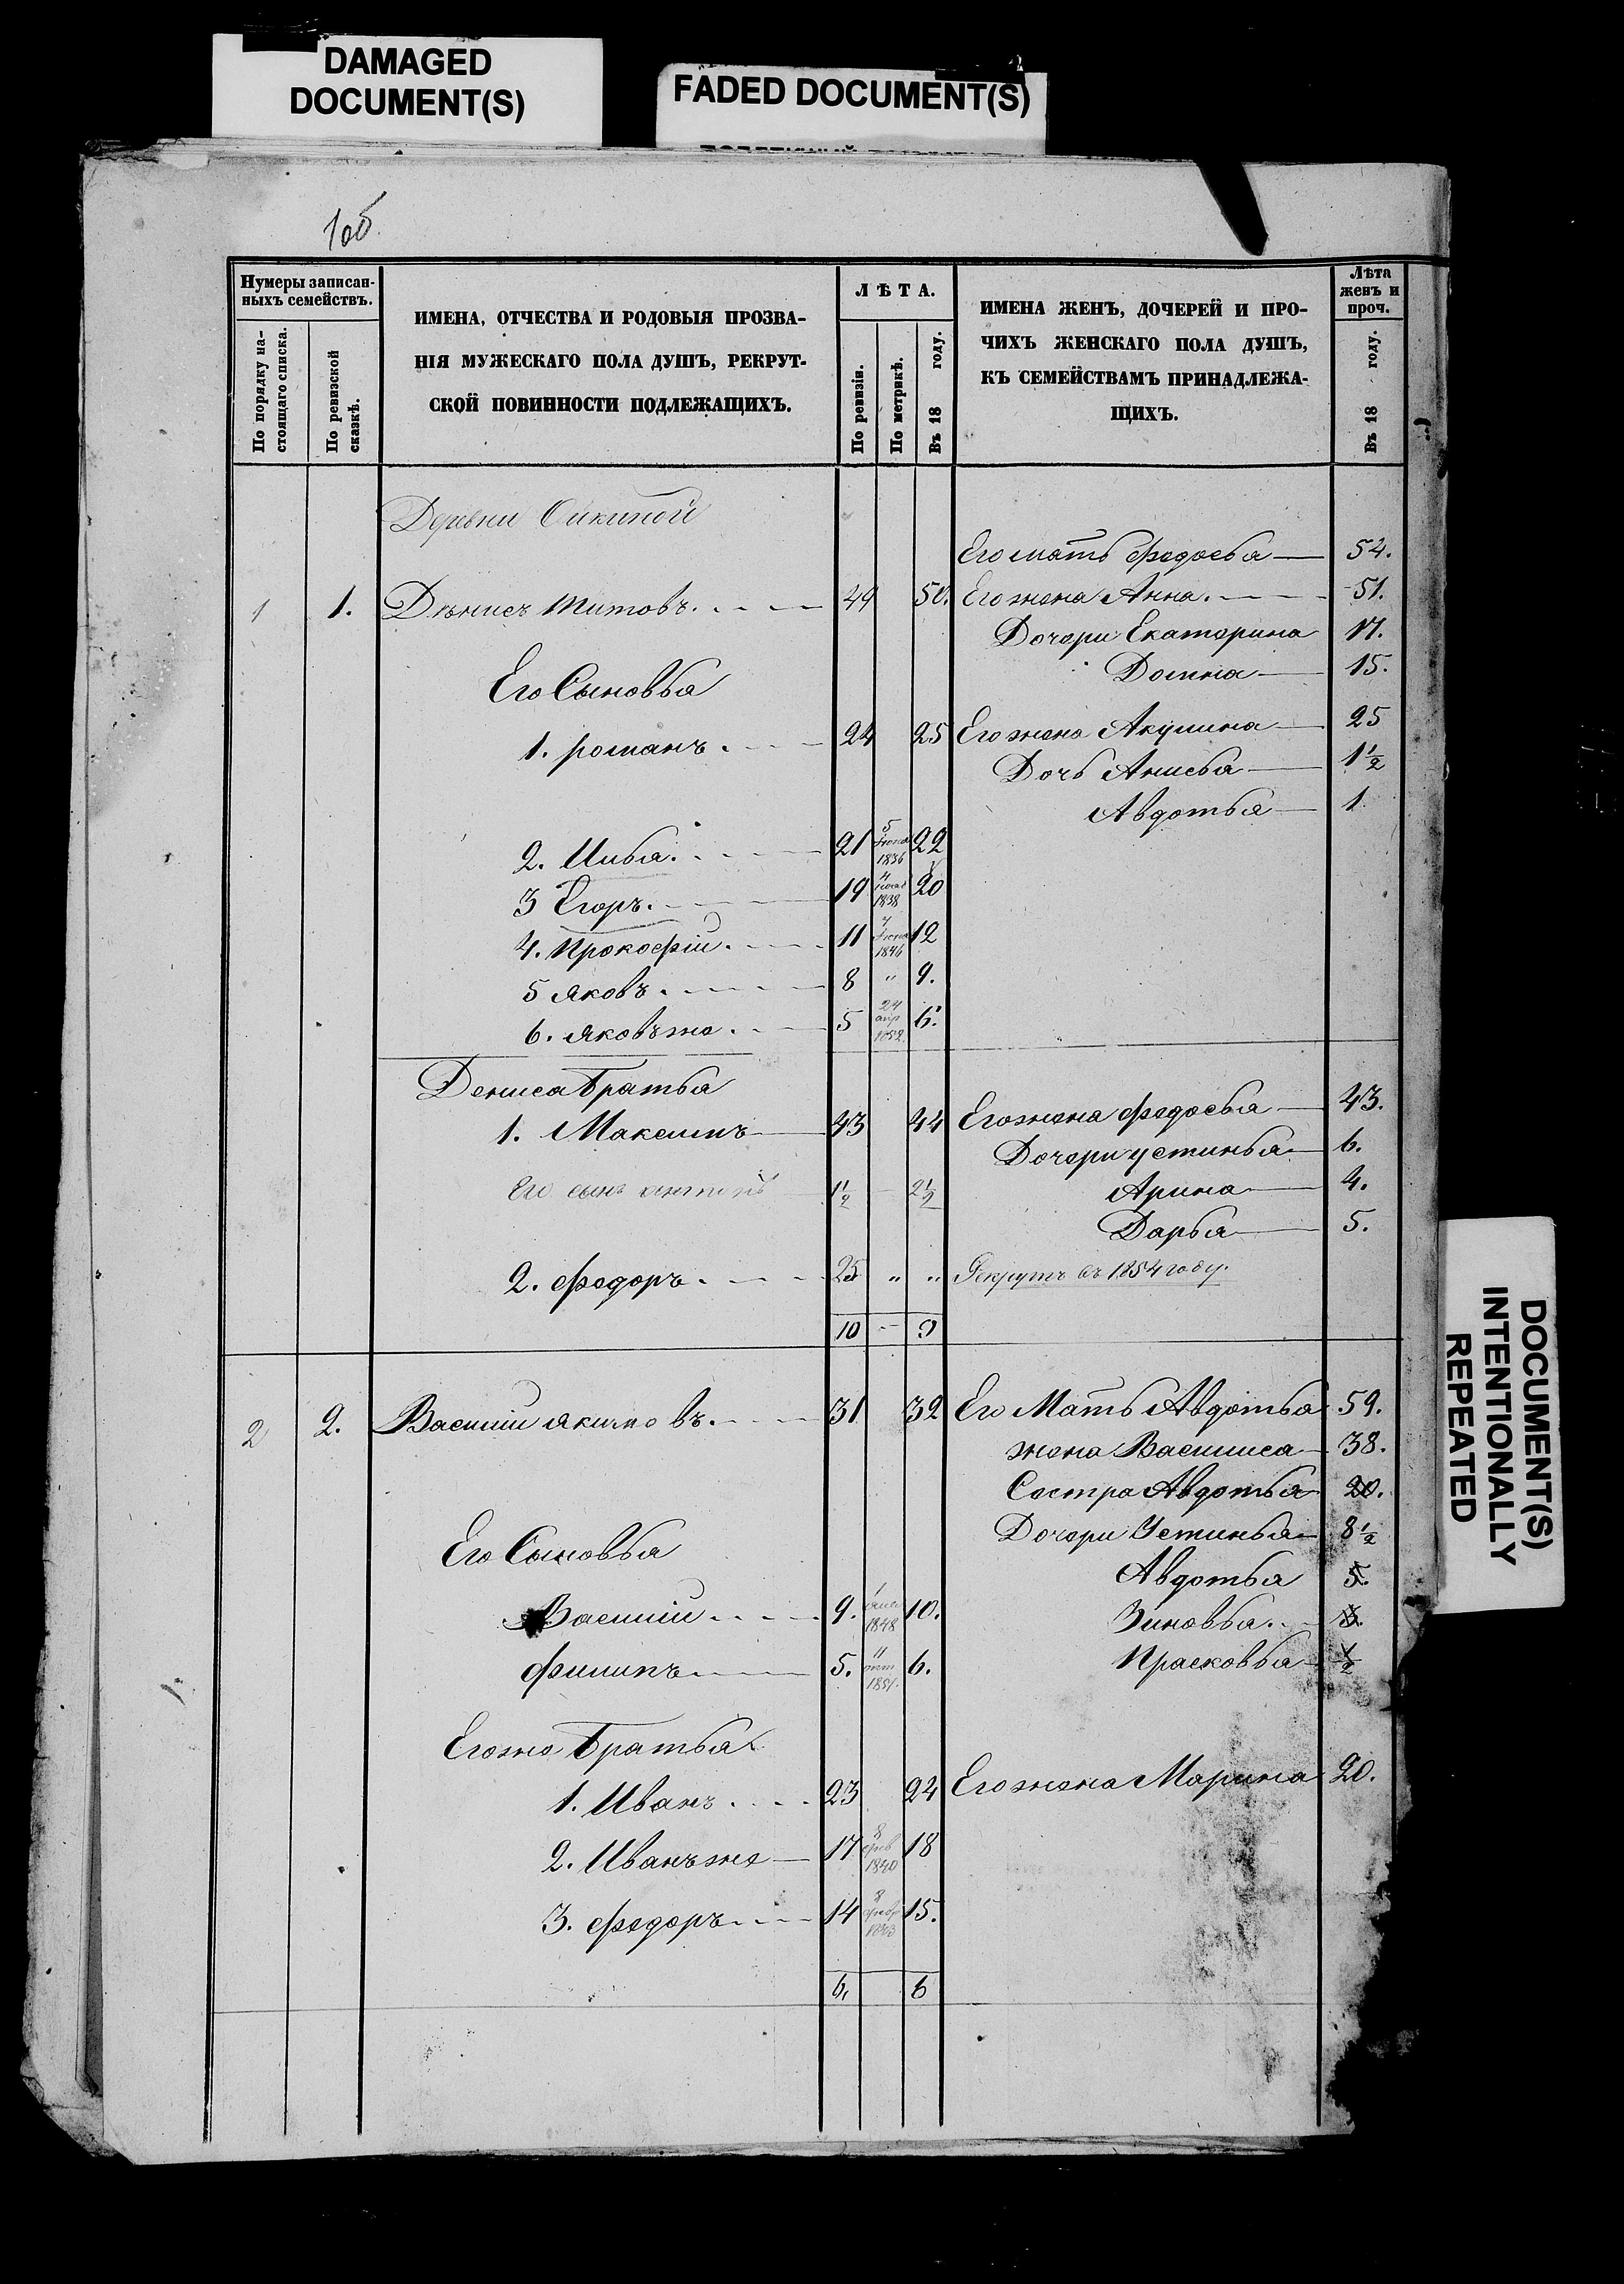 DAMAGED
DOCUMENT(S)
FADED DOCUMENT(S)
1об.
Нумеры записан-
ныхъ семействъ.
По порядку на-
стоящаго списка.
По ревизской
сказкѣ.
ИМЕНА, ОТЧЕСТВА И РОДОВЫЯ ПРОЗВА-
НІЯ МУЖЕСКАГО ПОЛА ДУШЪ, РЕКРУТ-
СКОЙ ПОВИННОСТИ ПОДЛЕЖАЩИХЪ.
ЛѢТА.
По ревизіи.
По метрикѣ.
Въ 18 году.
ИМЕНА ЖЕНЪ, ДОЧЕРЕЙ И ПРО-
ЧИХЪ ЖЕНСКАГО ПОЛА ДУШЪ,
КЪ СЕМЕЙСТВАМЪ ПРИНАДЛЕЖА-
ЩИХЪ.
Лѣта
женъ и
проч.
Въ 18 году.
Деревни
Его мать Федосья 54.
1 1. Денисъ Титовъ. 49 50. Его жена Анна. 51.
Дочери Екатерина 17.
Домна 15.
Его Сыновья
1. романъ. 24 25 Его жена Акулина 25
Дочь Анисья 1 1/2
Авдотья 1
2. Илья. 21 5 1836 22
3 Егоръ. 19 1838 20
4. Прокофій. 11 1846 12
5 Яковъ. 8 " 9.
6. Яковъ же. 5 24 апр 1852 6.
Дениса Братья
1. Максимъ 43 44 Его жена Федосья 43.
Дочери устинья 6.
Его сынъ 1 1/2 2 1/2 Арина 4.
Дарья 5.
2. Федоръ. 25 " " Рекрутъ въ 1854 году.
10 9
2 2. Василій Якимовъ. 31 32 Его Мать Авдотья 59.
жена Василиса 38.
Сестра Авдотья 20.
Дочери Устинья 8 1/2
Его Сыновья
Авдотья 5.
Василій 9. 1848 10. Зиновья. 3.
Филипъ 5. 11 1851. 6. Прасковья 1/2
Его же Братья
1. Иванъ 23 24 Его жена Марина 20.
2. Иванъ же 17 8 1840 18
3. Федоръ 14 8 февр 1843 15.
6. 6
DOCUMENT(S)
INTENTIONALLY
REPEATED